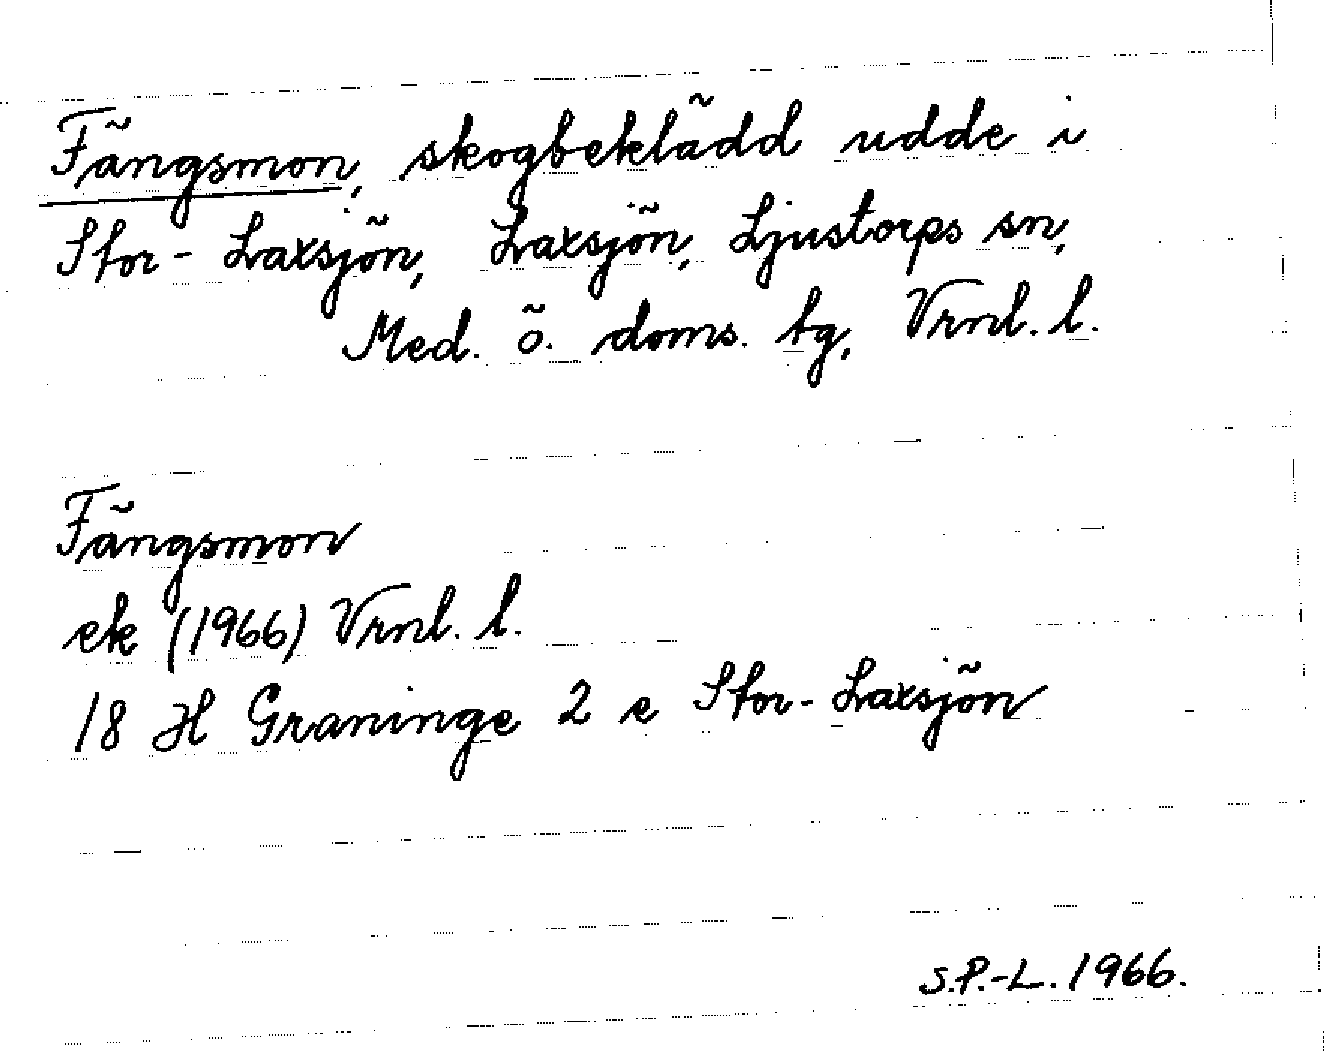 Fängsmon, skogbeklädd udde i
Stor-Laxsjön, Laxsjön, Ljustorps sn,
Med. ö. doms. tg, Vrnl. l.
Fängsmon
ek (1966) Vrnl. l.
18 H Graninge 2 e Stor-Laxsjön
S.P.-L. 1966.